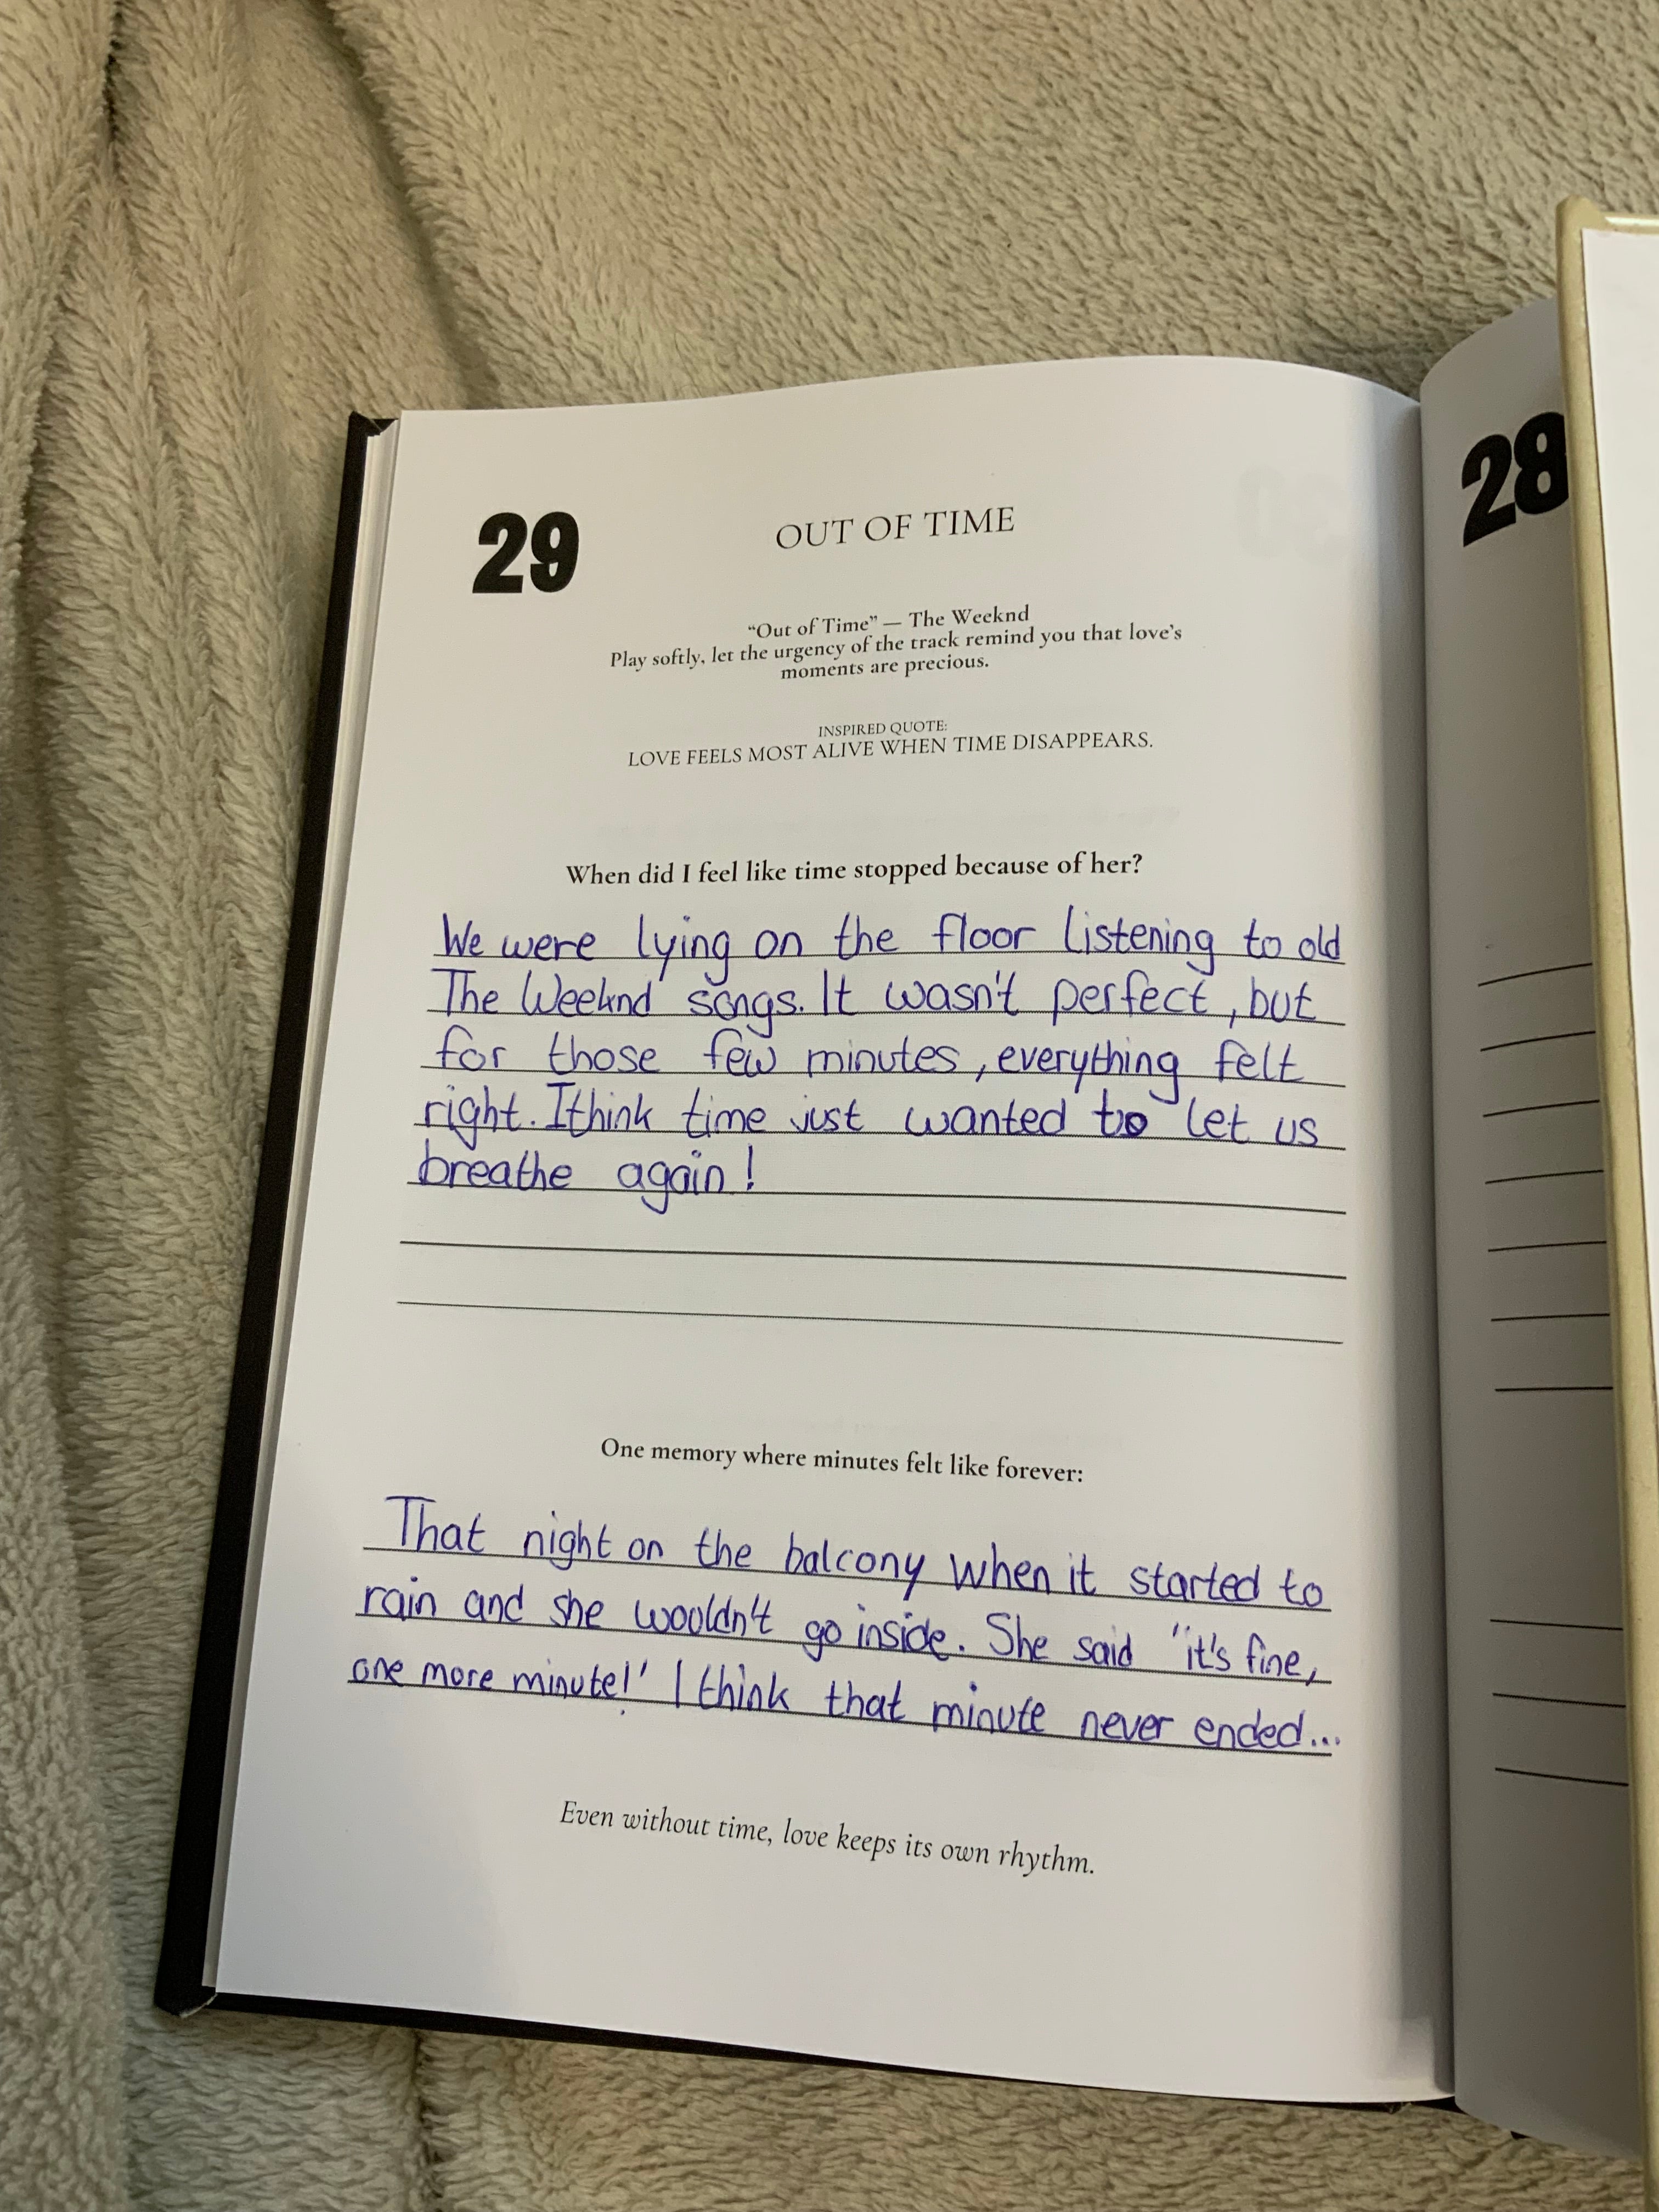 29
OUT OF TIME
“Out of Time” — The Weeknd
Play softly, let the urgency of the track remind you that love’s
moments are precious.
INSPIRED QUOTE:
LOVE FEELS MOST ALIVE WHEN TIME DISAPPEARS.
When did I feel like time stopped because of her?
We were lying on the floor listening to old
The Weeknd songs. It wasn't perfect, but
for those few minutes, everything felt
right. I think time just wanted to let us
breathe again!
One memory where minutes felt like forever:
That night on the balcony when it started to
rain and she wouldn't go inside. She said 'it's fine,
one more minute!' I think that minute never ended...
Even without time, love keeps its own rhythm.
28